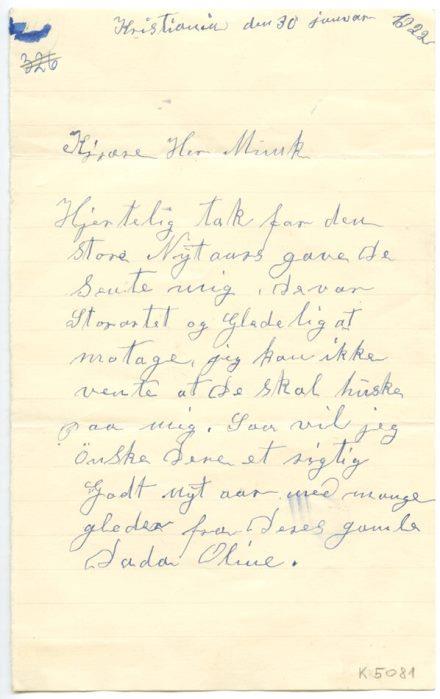 Kristiania den 30 januar 1922
326
Kjære Her Munk
Hjertelig tak far den
store Nÿtaars gave De
sente mig. De var
Storartet og Gledelig at
motage, jeg kan ikke
vente at De skal huske
paa mig. Saa vil jeg
önske Dere et rigtig
Godt nÿt aar med mange
gleder fra Deres gamle
Dada Oline.
K 5081